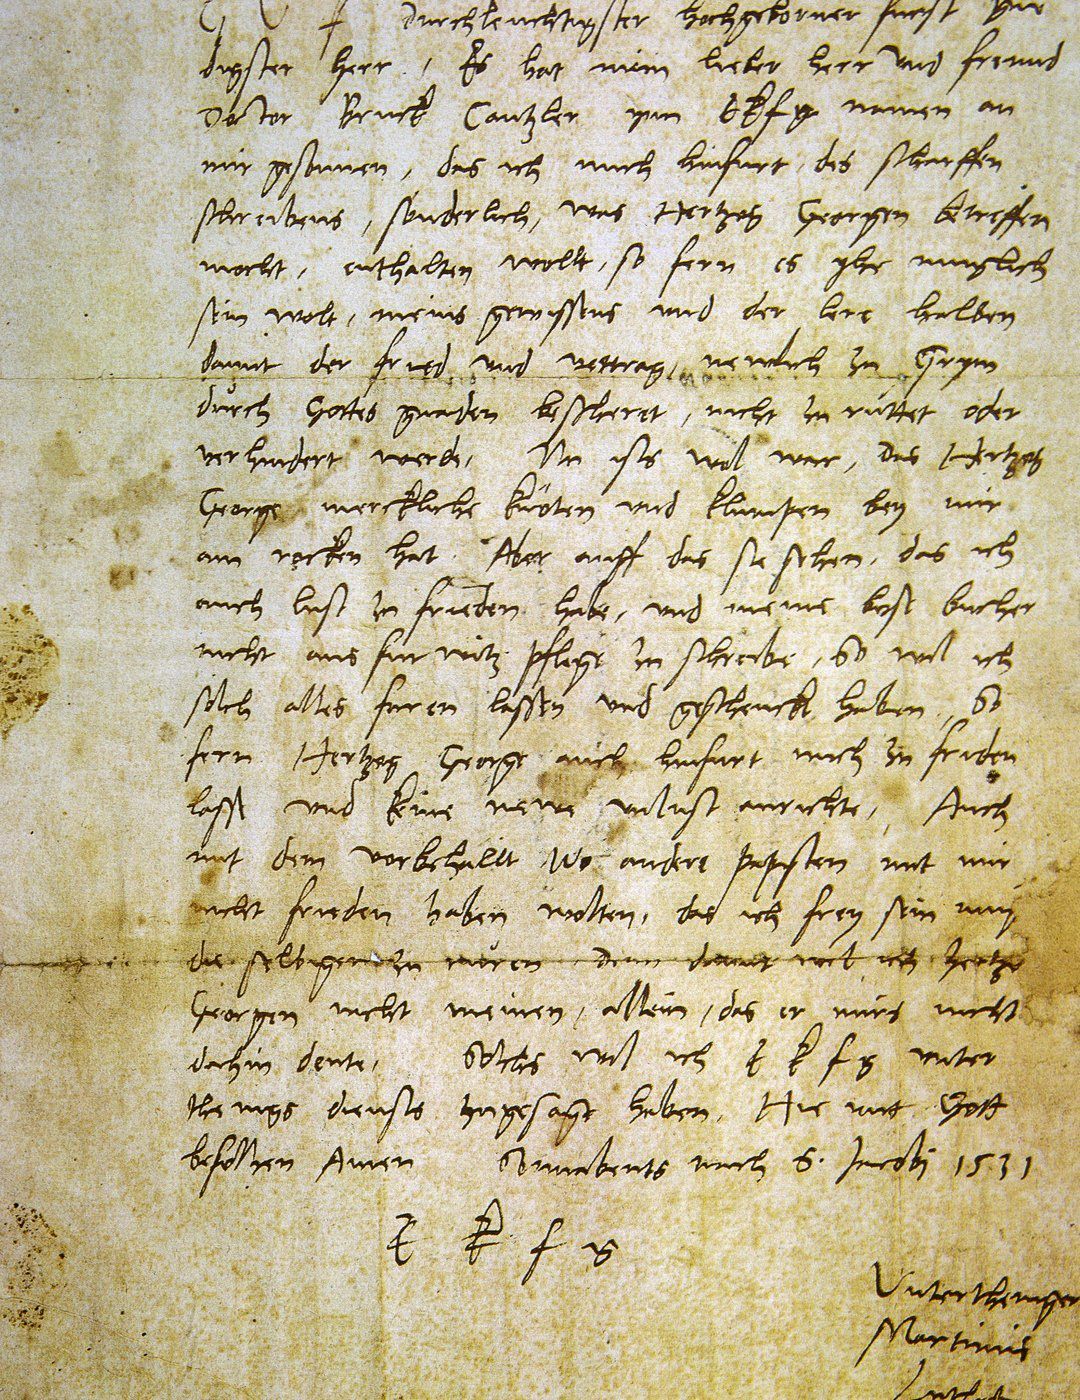 G V f Durchleuchtigster hochgeborner furst gne
digster herr / Es hat mein lieber herr vnd freund
Doctor Bruck Cantzler ynn EkfG namen an
mir gesonnen, das ich mich hinfurt des scharffen
schreibens, sonderlich, was Hertzog Georgen betreffen
mocht, enthalten wollt, so fern es yhe muglich
sein wolt, meins gewissens vnd der lere halben
damit der fried vnd vertrag, newlich zu Grym
durch Gottes gnaden bescheret, nicht zu ruttet oder
verhindert werde, Nu ists wol war, das Hertzog
George merckliche knoten vnd klumpen bey mir
am rocken hat. Aber auff das sie sehen, das ich
auch lust zu frieden habe, vnd meine bose bucher
nicht aus fur witz pflege zu schreibe, So wil ich
solch alles faren lassen vnd geschenckt haben, So
fern Hertzog George auch hinfurt mich zu friden
lasse vnd keine newe vnlust anrichte, Auch
mit dem vorbehallt Wo andere papisten mit mir
nicht frieden haben wolten, das ich frey sein muge
die selbigen zu ruren Denn damit wil ich hertzog
Georgen nicht meinen, allein, das er mirs nicht
dahin deute, Solchs wil ich E k f g vnter
thenigs diensts zugesagt haben, Hie mit Gott
befolhen Amen Sonnabents nach S. Jacobi 1531
E k f g
Vntertheniger
Martinus
Luther